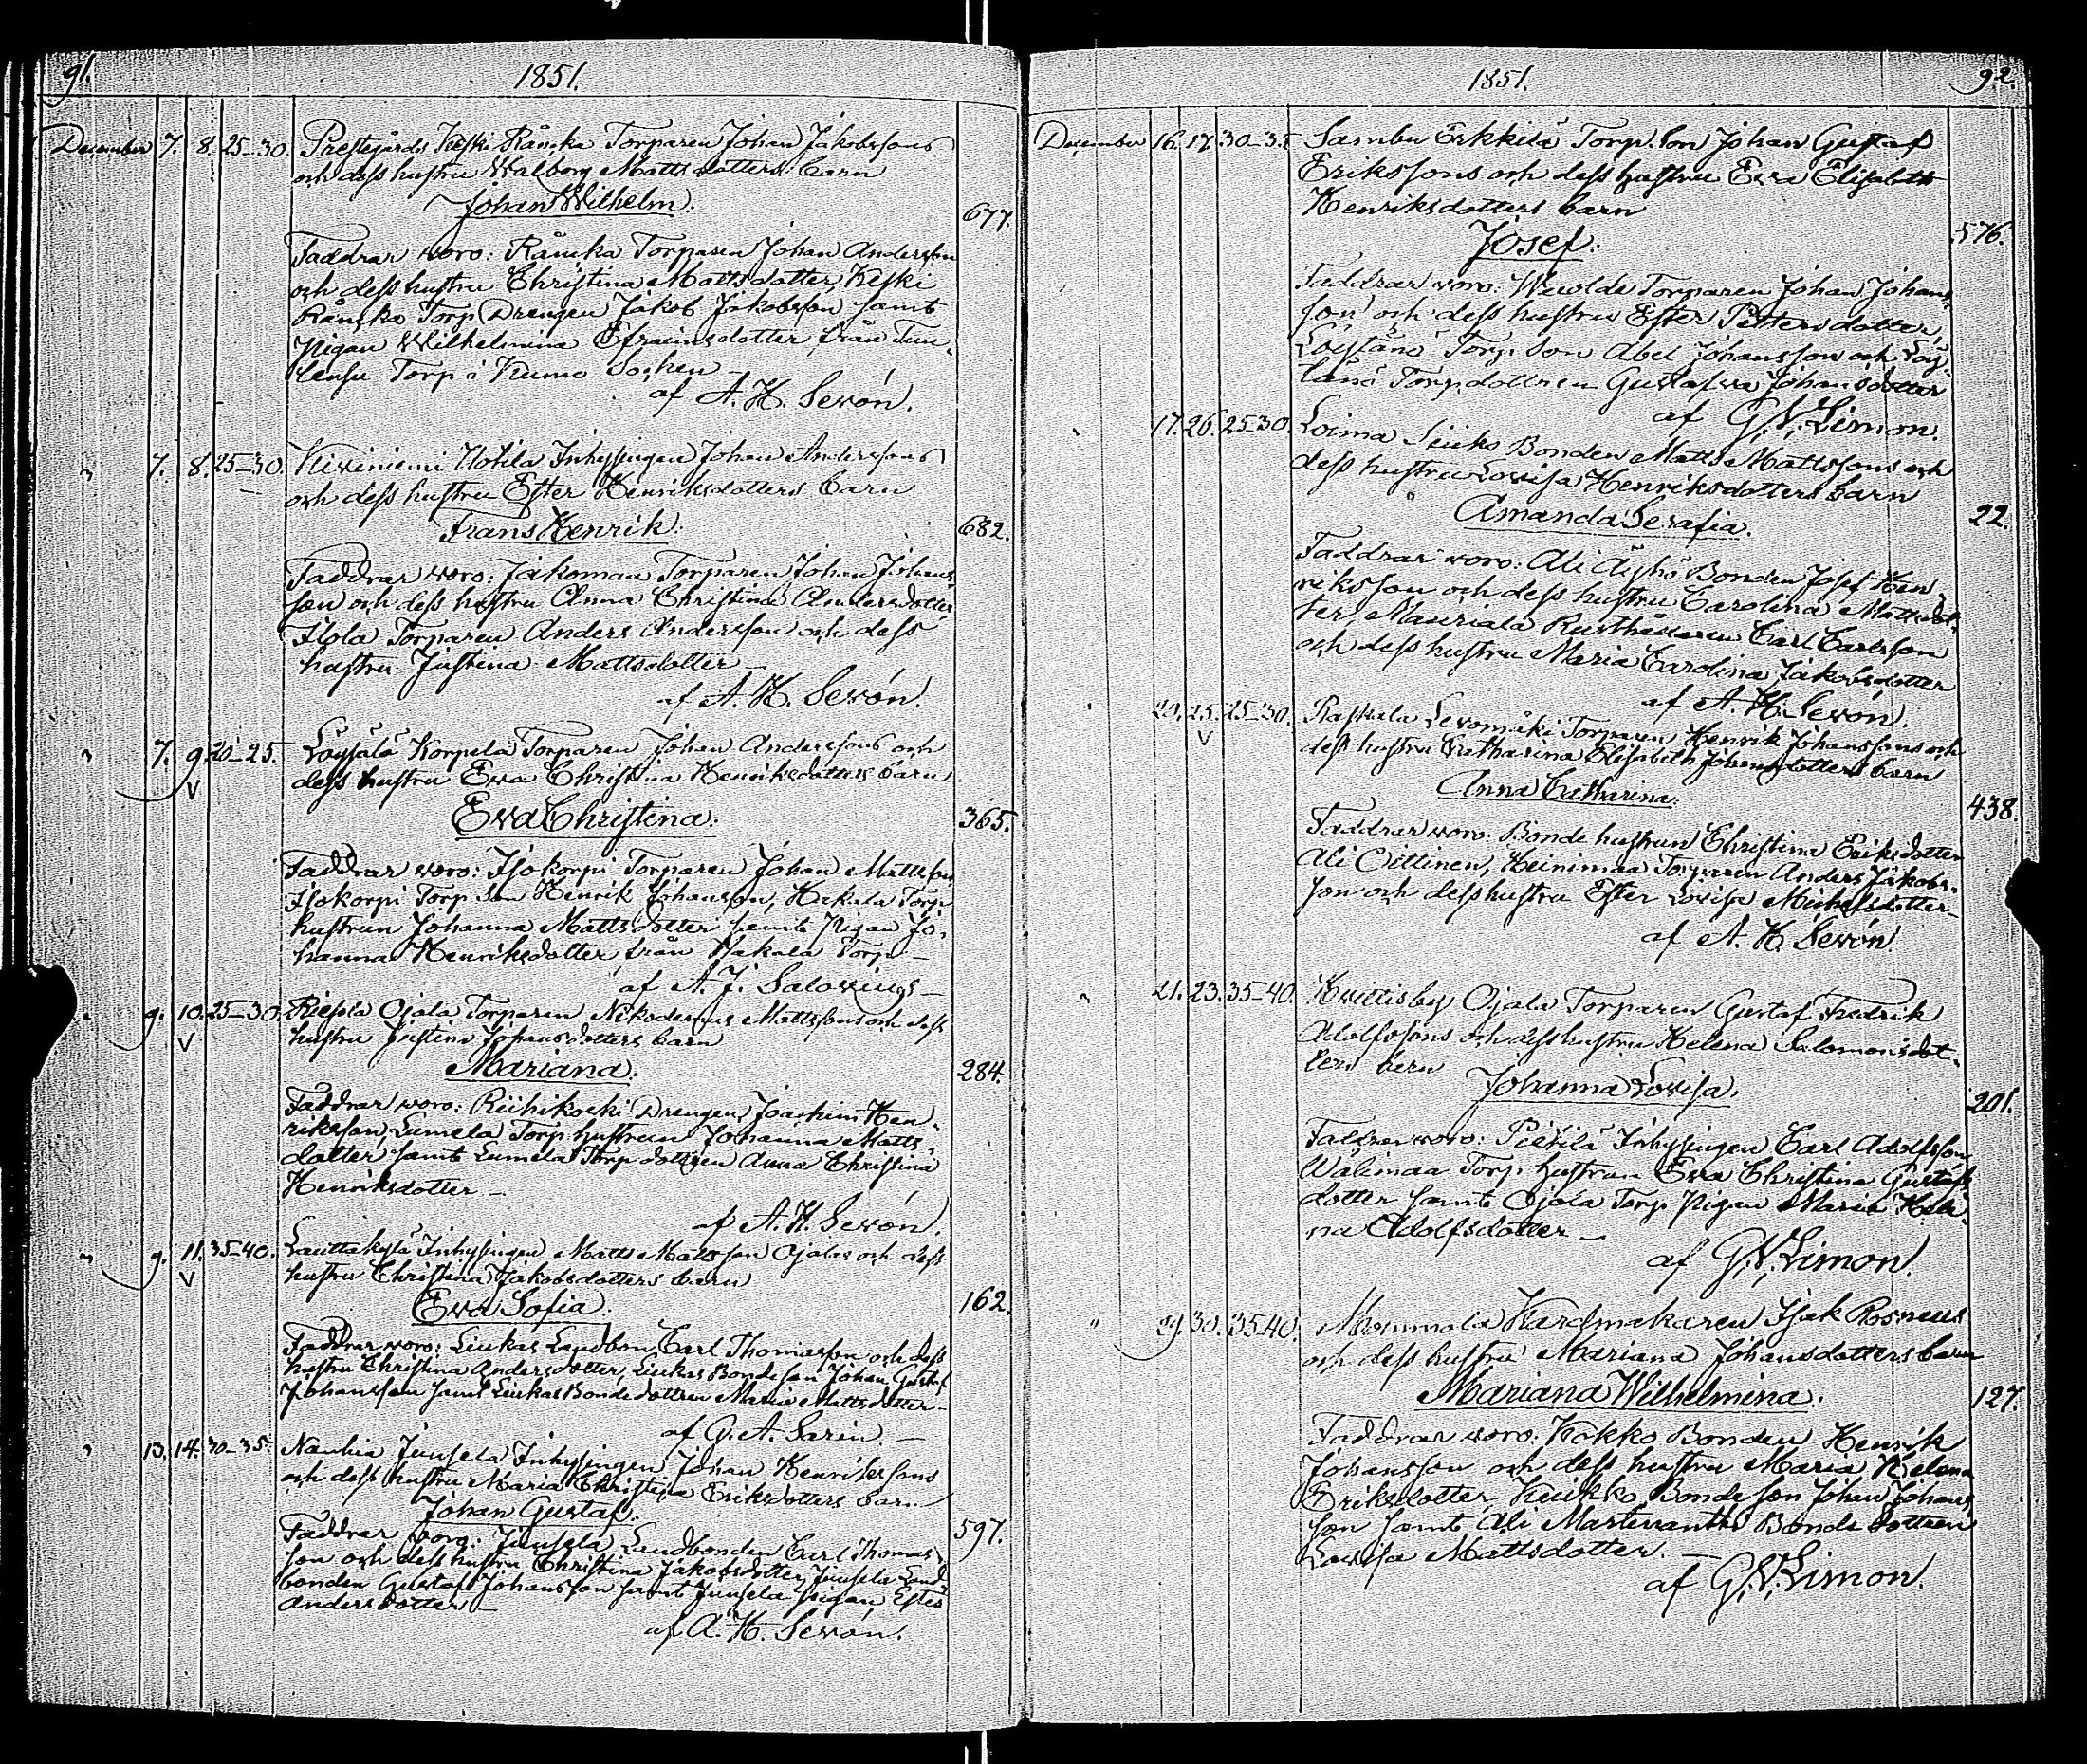 91.
1851.
December 7. 8. 25-30. Prestegårds Keski Rånska Torparen Johan Jakobssons
och dess hustru Walborg Mattsdotters barn
Johan Wilhelm.
677.
Faddrar woro: Rånska Torparen Johan Andersson
och dess hustru Christina Mattsdotter, Keski
Rånska Torp Drengen Jakob Jakobsson samt
Pigan Wilhelmina Efraimsdotter från
Torp i Kumo Socken
af A. H. Sewón.
" 7. 8. 25-30. Kiviniemi Uotila Inhysingen Johan Anderssons
och dess hustru Ester Henriksdotters barn
Frans Henrik.
682.
Faddrar woro: Jakoman Torparen Johan Johans
son och dess hustru Anna Christina Andersdotter
Torparen Anders Andersson och dess
hustru Justina Mattsdotter
af A. H. Sewón.
" 7. 9. 20-25. Korpela Torparen Johan Anderssons och
dess hustru Ewa Christina Henriksdotters barn
Ewa Christina.
365.
Faddrar woro: Isokorpi Torparen Johan Mattsson
Isokorpi Torp Son Henrik Johansson, Hakala Torp
hustrun Johanna Mattsdotter samt Pigan Jo-
hanna Henriksdotter från Hakala Torp
af A. J. Salovius
" 9. 10. 25-30. Ojala Torparen Nikodemus Mattssons och dess
hustru Justina Johansdotters barn
Mariana.
284.
Faddrar woro: Riihikoski Drengen Joachim Hen-
riksson, Lumela Torp hustrun Johanna Matts-
dotter samt Lumela Torp dottren Anna Christina
Henriksdotter
af A. H. Sewón.
" 9. 11. 35-40. Lauttakylä Inhysingen Matts Mattsson Ojalas och dess
hustru Christina Jakobsdotters barn
Ewa Sofia.
162.
Faddrar woro: Liukas Landbon Carl Thomasson och dess
hustru Christina Andersdotter, Liukas Bonde son Johan Gustaf
Johansson samt Liukas Bonde dottren Maria Mattsdotter
af G. A. Sarin.
" 13. 14. 30-35. Nanhia Junsela Inhysingen Johan Henrikssons
och dess hustru Maria Christina Eriksdotters barn
Johan Gustaf.
597.
Faddrar woro: Junsela Landbonden Carl Thomas-
son och dess hustru Christina Jakobsdotter, Junsela Land
bonden Gustaf Johansson samt Junsela pigan Ester
Andersdotter
af A. H. Sewón.
1851.
92.
December 16. 17. 30-35. Sambu Erkkilä Torp. Son Johan Gustaf
Erikssons och dess hustru Ewa Elisabeth
Henriksdotters barn
Josef.
576.
Faddrar woro: Torparen Johan Johans
son och dess hustru Ester Pettersdotter,
Torp. Son Abel Johansson och
Torpdottren Gustafva Johansdotter
af G. W. Limon.
" 17. 26. 25-30. Loima Seiko Bonden Matts Mattssons och
dess hustru Lowisa Henriksdotters barn
Amanda Serafia.
22.
Faddrar woro: Ali Äijhö Bonden Josef Hen-
riksson och dess hustru Carolina Mattsdot-
ter, Mauriala Rusthållaren Carl Carlsson
och dess hustru Maria Carolina Jakobsdotter
af A. H. Sewón.
" 20. 25. 25-30. Raskala Levonmäki Torparen Henrik Johanssons och
dess hustru Catharina Elisabeth Johansdotters barn
Anna Catharina.
438.
Faddrar woro: Bonde hustrun Christina Eriksdotter
Ali Oittinen, Heinimaa Torparen Anders Jakobs-
son och dess hustru Ester Lovisa Michelsdotter
af A. H. Sewón.
" 21. 23. 35-40. Huittisby Ojala Torparen Gustaf Fredrik
Adolfssons och dess hustru Helena Salomonsdot-
ters barn
Johanna Lovisa.
201.
Faddrar woro: Pietilä Inhysingen Carl Adolfsson
Wälimaa Torp. hustrun Ewa Christina Gustafs
dotter samt Ojala Torp. Pigan Maria Hele-
na Adolfsdotter
af G. W. Limon.
" 29. 30. 35-40. Mommola Kardmakaren Isak Rosneus
och dess hustru Mariana Johansdotters barn
Mariana Wilhelmina.
127.
Faddrar woro: Kokko Bonden Henrik
Johansson och dess hustru Maria Helena
Eriksdotter, Bonde son Johan Johans
son samt Ali Bonde dottren
Lovisa Mattsdotter.
af G. W. Limon.